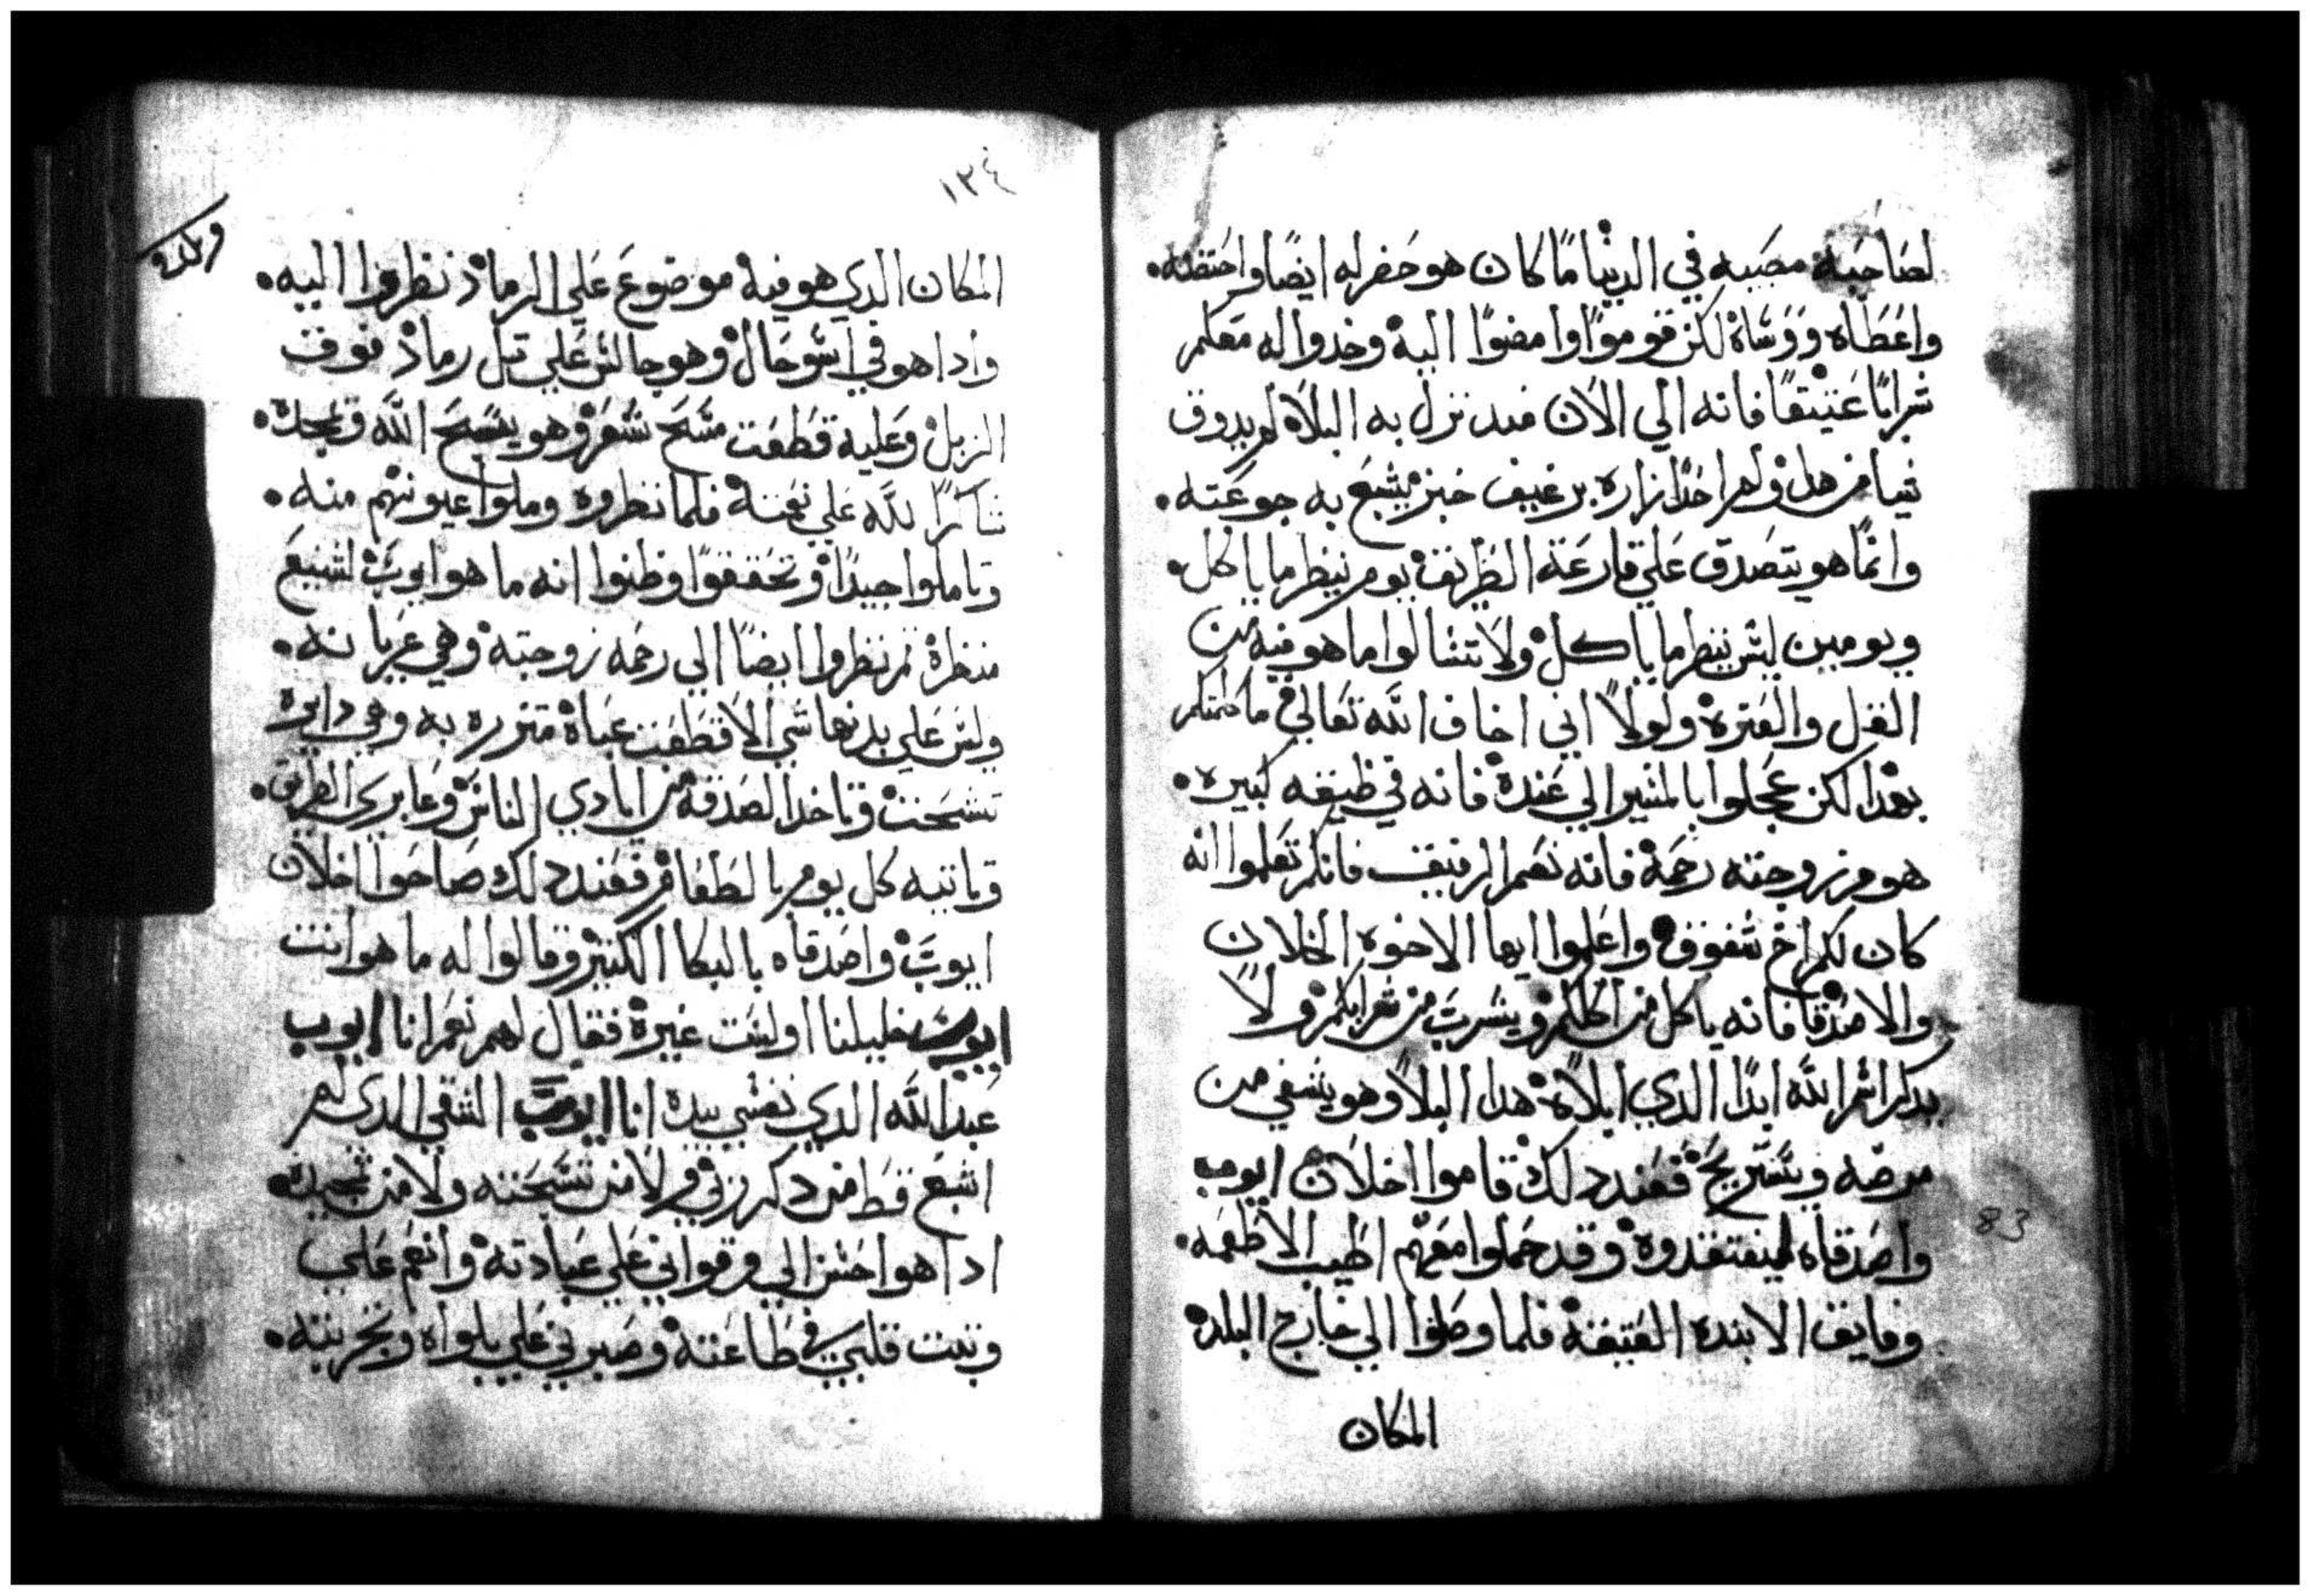 لصاحبه مصيبه في الدنيا ما كان هو حضر له ايضا واحتضنه.
واعطاه ووساه لكن قوموا وامضوا اليه وخدوا له معكم
شرابا عتيقا فانه الي الان مند نزل به البلاء لم يدوق
شيا من هدا ولم احدا زاره برغيف خبز يشبع به جوعته.
وانما هو يتصدق علي قارعة الطريق يوم ينظر ما ياكل.
ويومين ليس ينظر ما ياكل ولا تسالوا ما هو فيه من
القل والعتره ولولا اني اخاف الله تعالي ما كلمتكم
بهدا لكن عجلوا بالمسير الي عنده فانه في ضيقه كبيره.
هو مع زوجته رحمة فانه نعم الرفيق فانكم تعلموا انه
كان لكم اخ شفوق واعلموا ايها الاخوه الخلان
والاصدقا فانه ياكل من اكلكم ويشرب من شرابكم ولا
يدكر اسم الله ابدا الدي ابلاه هدا البلا وهو يشفي من
مرضه ويستريح فعند دلك قاموا اخلان ايوب
واصدقاه ليفتقدوه وقد حملوا معهم اطيب الاطعمه.
وفايق الانبده العتيقة فلما وصلوا الي خارج البلده
المكان
83
١٢٤
المكان الدي هو فيه موضوع علي الرماد نظروا اليه.
وادا هو في اشو حال وهو جالس علي تل رماد فوق
الزبل وعليه قطعت مسح شعر وهو يسبح الله ويمجده.
شاكرا لله علي نعمته فلما نظروه وملوا عيونهم منه.
وتاملوا جيدا وتحققوا وظنوا انه ما هو ايوب لشيع
منظرة ثم نظروا ايضا الي رحمه زوجته وهي عريانه.
وليس علي بدنها شي الا قطعت عباة متزره به وهي دايره
تشحت وتاخد الصدقة من ايادي الناس وعابري الطريق.
وتاتيه كل يوم بالطعام فعند دلك صاحوا اخلان
ايوب واصدقاه بالبكا الكتير وقالوا له ما هو انت
ايوب خليلنا اوليس غيره فقال لهم نعم انا ايوب
عبد الله الدي نفسي بيده انا ايوب الشقي الدي لم
اشبع قط من دكر ربي ولا من تسبحته ولا من تمجيده
ادا هوا احسن الي وقواني علي عبادته وانعم علي
وتبت قلبي في طاعته وصبرني علي بلواه وتجربته.